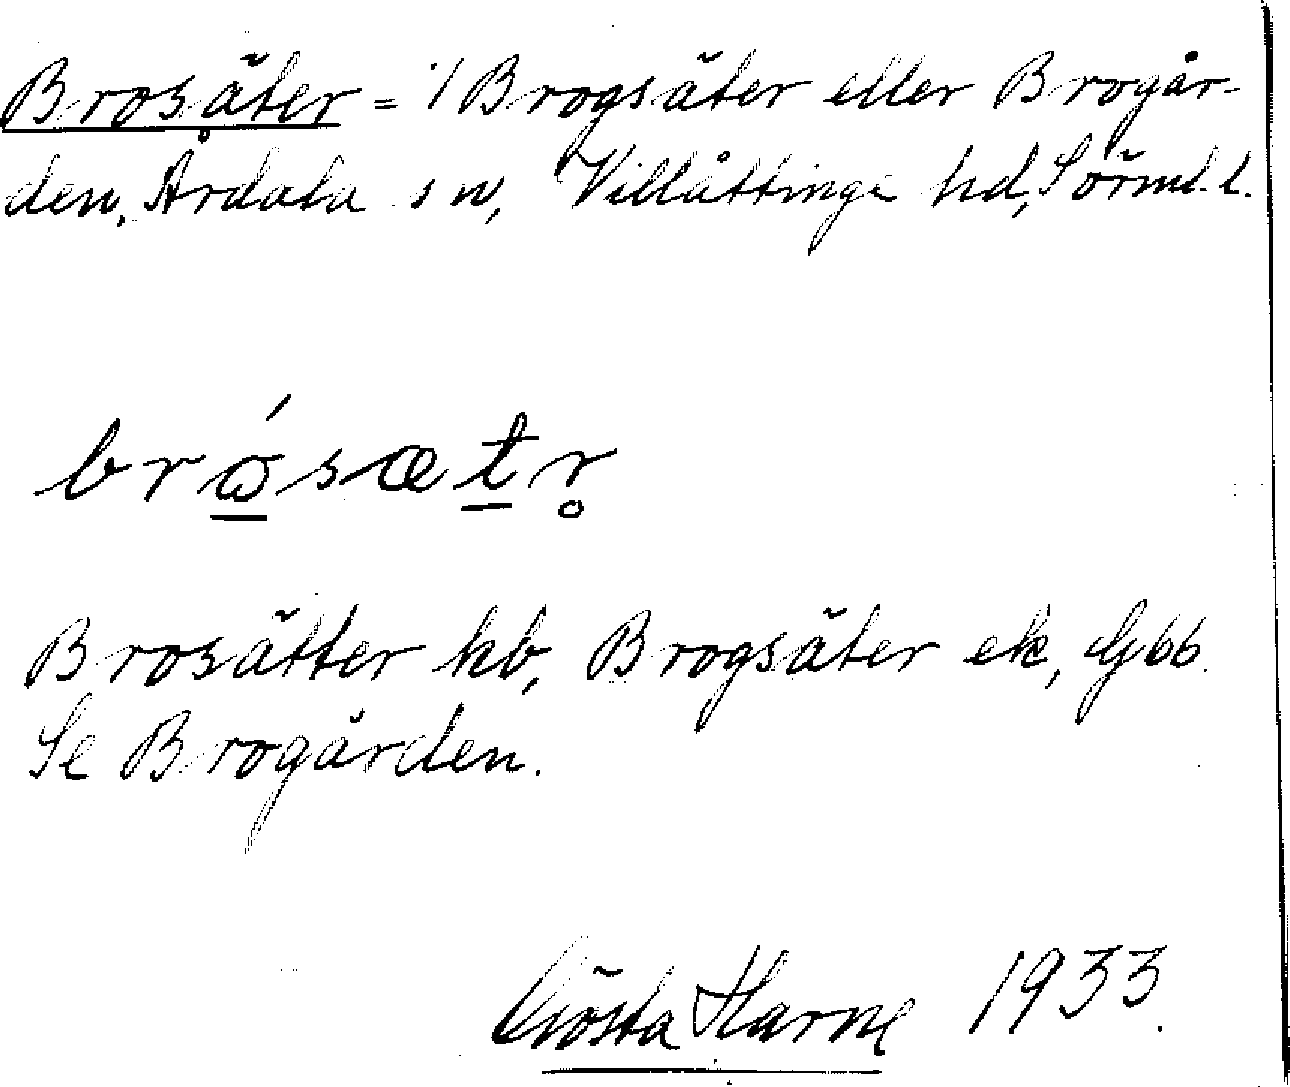 Brosäter = 1/ Brogsäter eller Brogår-
den, Årdala sn, Villåttinge hd, Sörml. l.
brósætr̥
Brosätter kb, Brogsäter ek, Gbb.
Se Brogården.
Gösta Harne 1933.